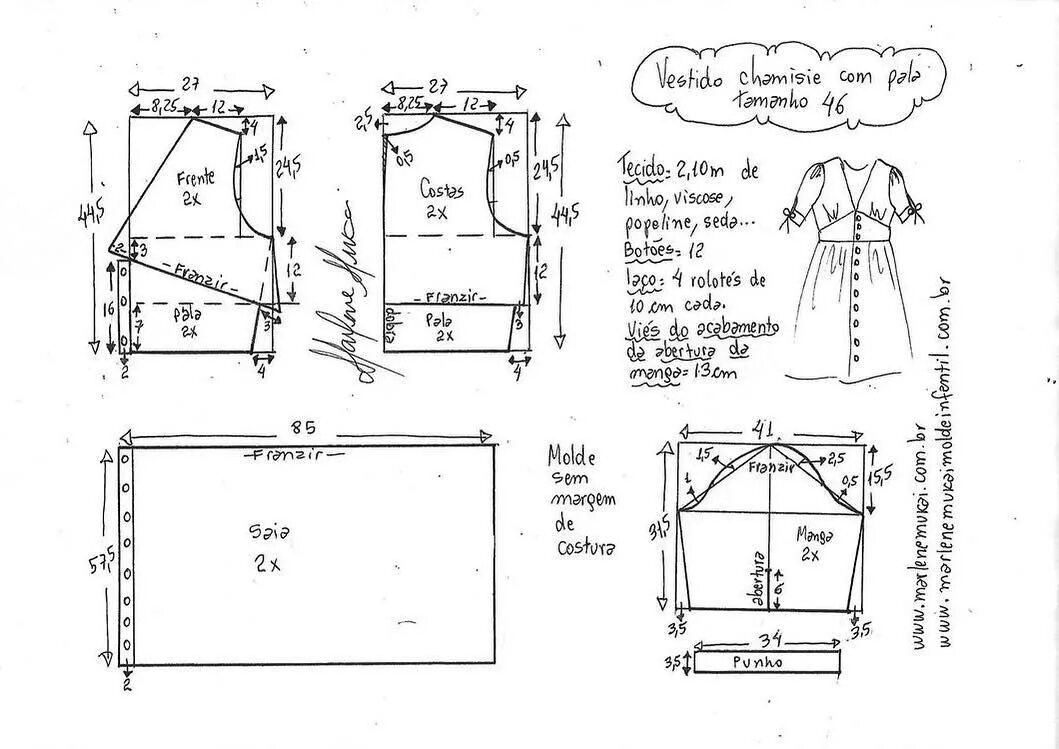 Vestido chamisie com pala
tamanho 46
27
8,25
12
4
1,5
24,5
44,5
Frente
2x
2
3
- Franzir -
12
16
7
pala
2x
3
2
4
27
8,25
12
2,5
4
0,5
0,5
24,5
44,5
Costas
2x
12
- Franzir -
dobra
Pala
2x
3
4
Marlene Mukai
Tecido= 2,10m de
linho, viscose,
popeline, seda...
Botões= 12
laço= 4 rolotés de
10 cm cada.
Viés do acabamento
da abertura da
manga= 13cm
85
- Franzir -
57,5
Saia
2x
2
Molde
sem
margem
de
costura
41
1,5
Franzir
2,5
1
0,5
15,5
31,5
Manga
2x
abertura
6
3,5
3,5
34
3,5
Punho
www.marlenemukai.com.br
www.marlenemukaimoldeinfantil.com.br